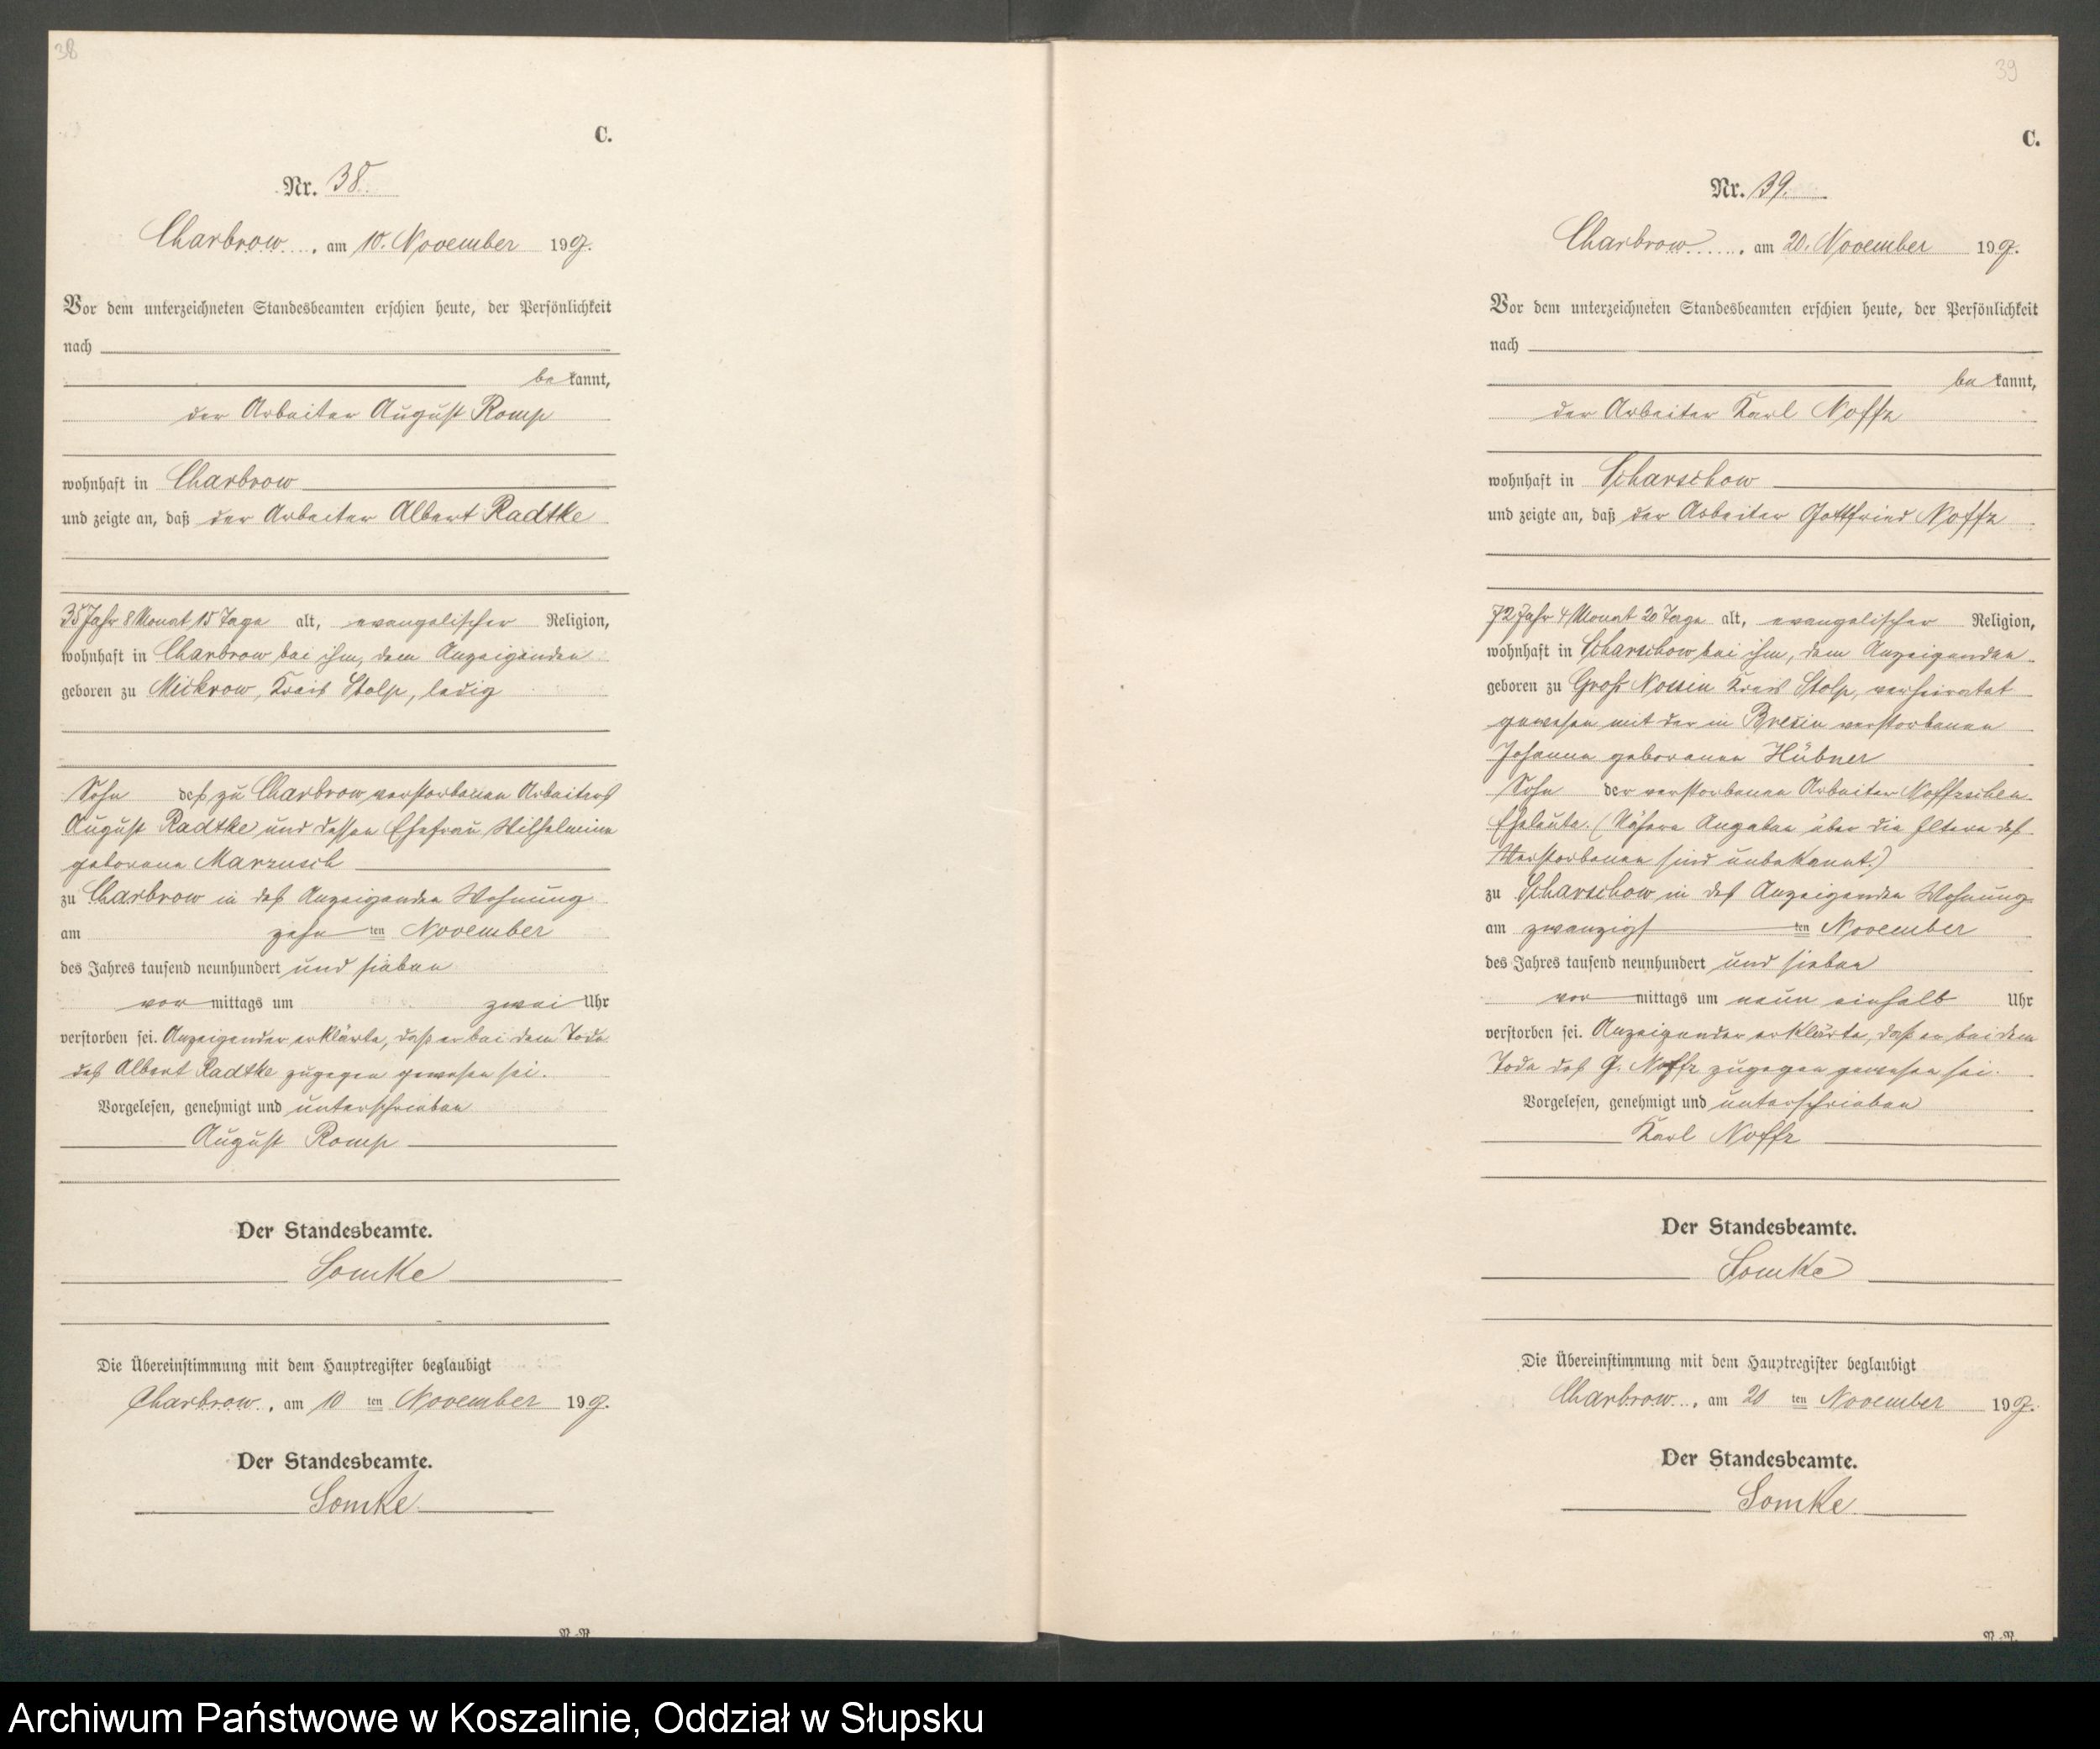 38
C.
Nr. 38.
Charbrow, am 10. November 1907.
Vor dem unterzeichneten Standesbeamten erschien heute, der Persönlichkeit
nach
bekannt,
der Arbeiter August Romp
wohnhaft in Charbrow
und zeigte an, daß der Arbeiter Albert Radtke
35 Jahr 8 Monat 15 Tage alt, evangelischer Religion,
wohnhaft in Charbrow bei ihm, dem Anzeigenden
geboren zu Mickrow, Kreis Stolp, ledig
Sohn des zu Charbrow verstorbenen Arbeiters
August Radtke und dessen Ehefrau Wilhelmine
geborene Marzusch
zu Charbrow in des Anzeigenden Wohnung
am zehnten November
des Jahres tausend neunhundert und sieben
vormittags um zwei Uhr
verstorben sei. Anzeigender erklärte, daß er bei dem Tode
des Albert Radtke zugegen gewesen sei.
Vorgelesen, genehmigt und unterschrieben
August Romp
Der Standesbeamte.
Somke
Die Übereinstimmung mit dem Hauptregister beglaubigt
Charbrow, am 10ten November 1907.
Der Standesbeamte.
Somke
39
C.
Nr. 39.
Charbrow, am 20. November 1907.
Vor dem unterzeichneten Standesbeamten erschien heute, der Persönlichkeit
nach
bekannt,
der Arbeiter Karl Noffz
wohnhaft in Scharschow
und zeigte an, daß der Arbeiter Gottfried Noffz
72 Jahr 4 Monat 20 Tage alt, evangelischer Religion,
wohnhaft in Scharschow bei ihm, dem Anzeigenden
geboren zu Groß Nossin Kreis Stolp, verheiratet
gewesen mit der in Bresin verstorbenen
Johanna geborenen Hübner
Sohn der verstorbenen Arbeiter Noffzschen
Eheleute. (Nähere Angaben über die Eltern des
Verstorbenen sind unbekannt.)
zu Scharschow in des Anzeigenden Wohnung
am zwanzigsten November
des Jahres tausend neunhundert und sieben
vormittags um neun einhalb Uhr
verstorben sei. Anzeigender erklärte, daß er bei dem
Tode des G. Noffz zugegen gewesen sei.
Vorgelesen, genehmigt und unterschrieben
Karl Noffz
Der Standesbeamte.
Somke
Die Übereinstimmung mit dem Hauptregister beglaubigt
Charbrow, am 20ten November 1907.
Der Standesbeamte.
Somke
Archiwum Państwowe w Koszalinie, Oddział w Słupsku